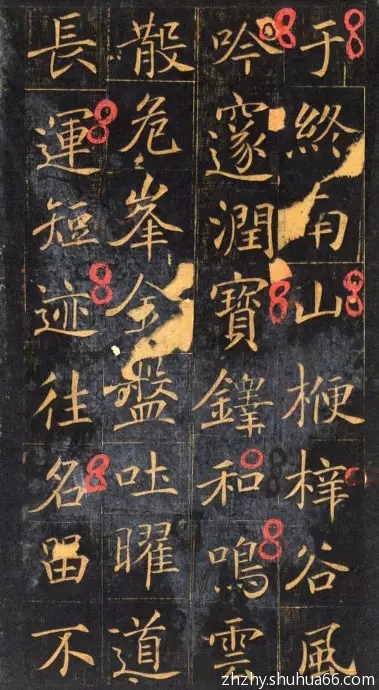 于終南山楩梓谷風
吟邃澗寶鐸和鳴雲
散危峯金盤吐曜道
長運短迹往名留不
zhzhy.shuhua66.com